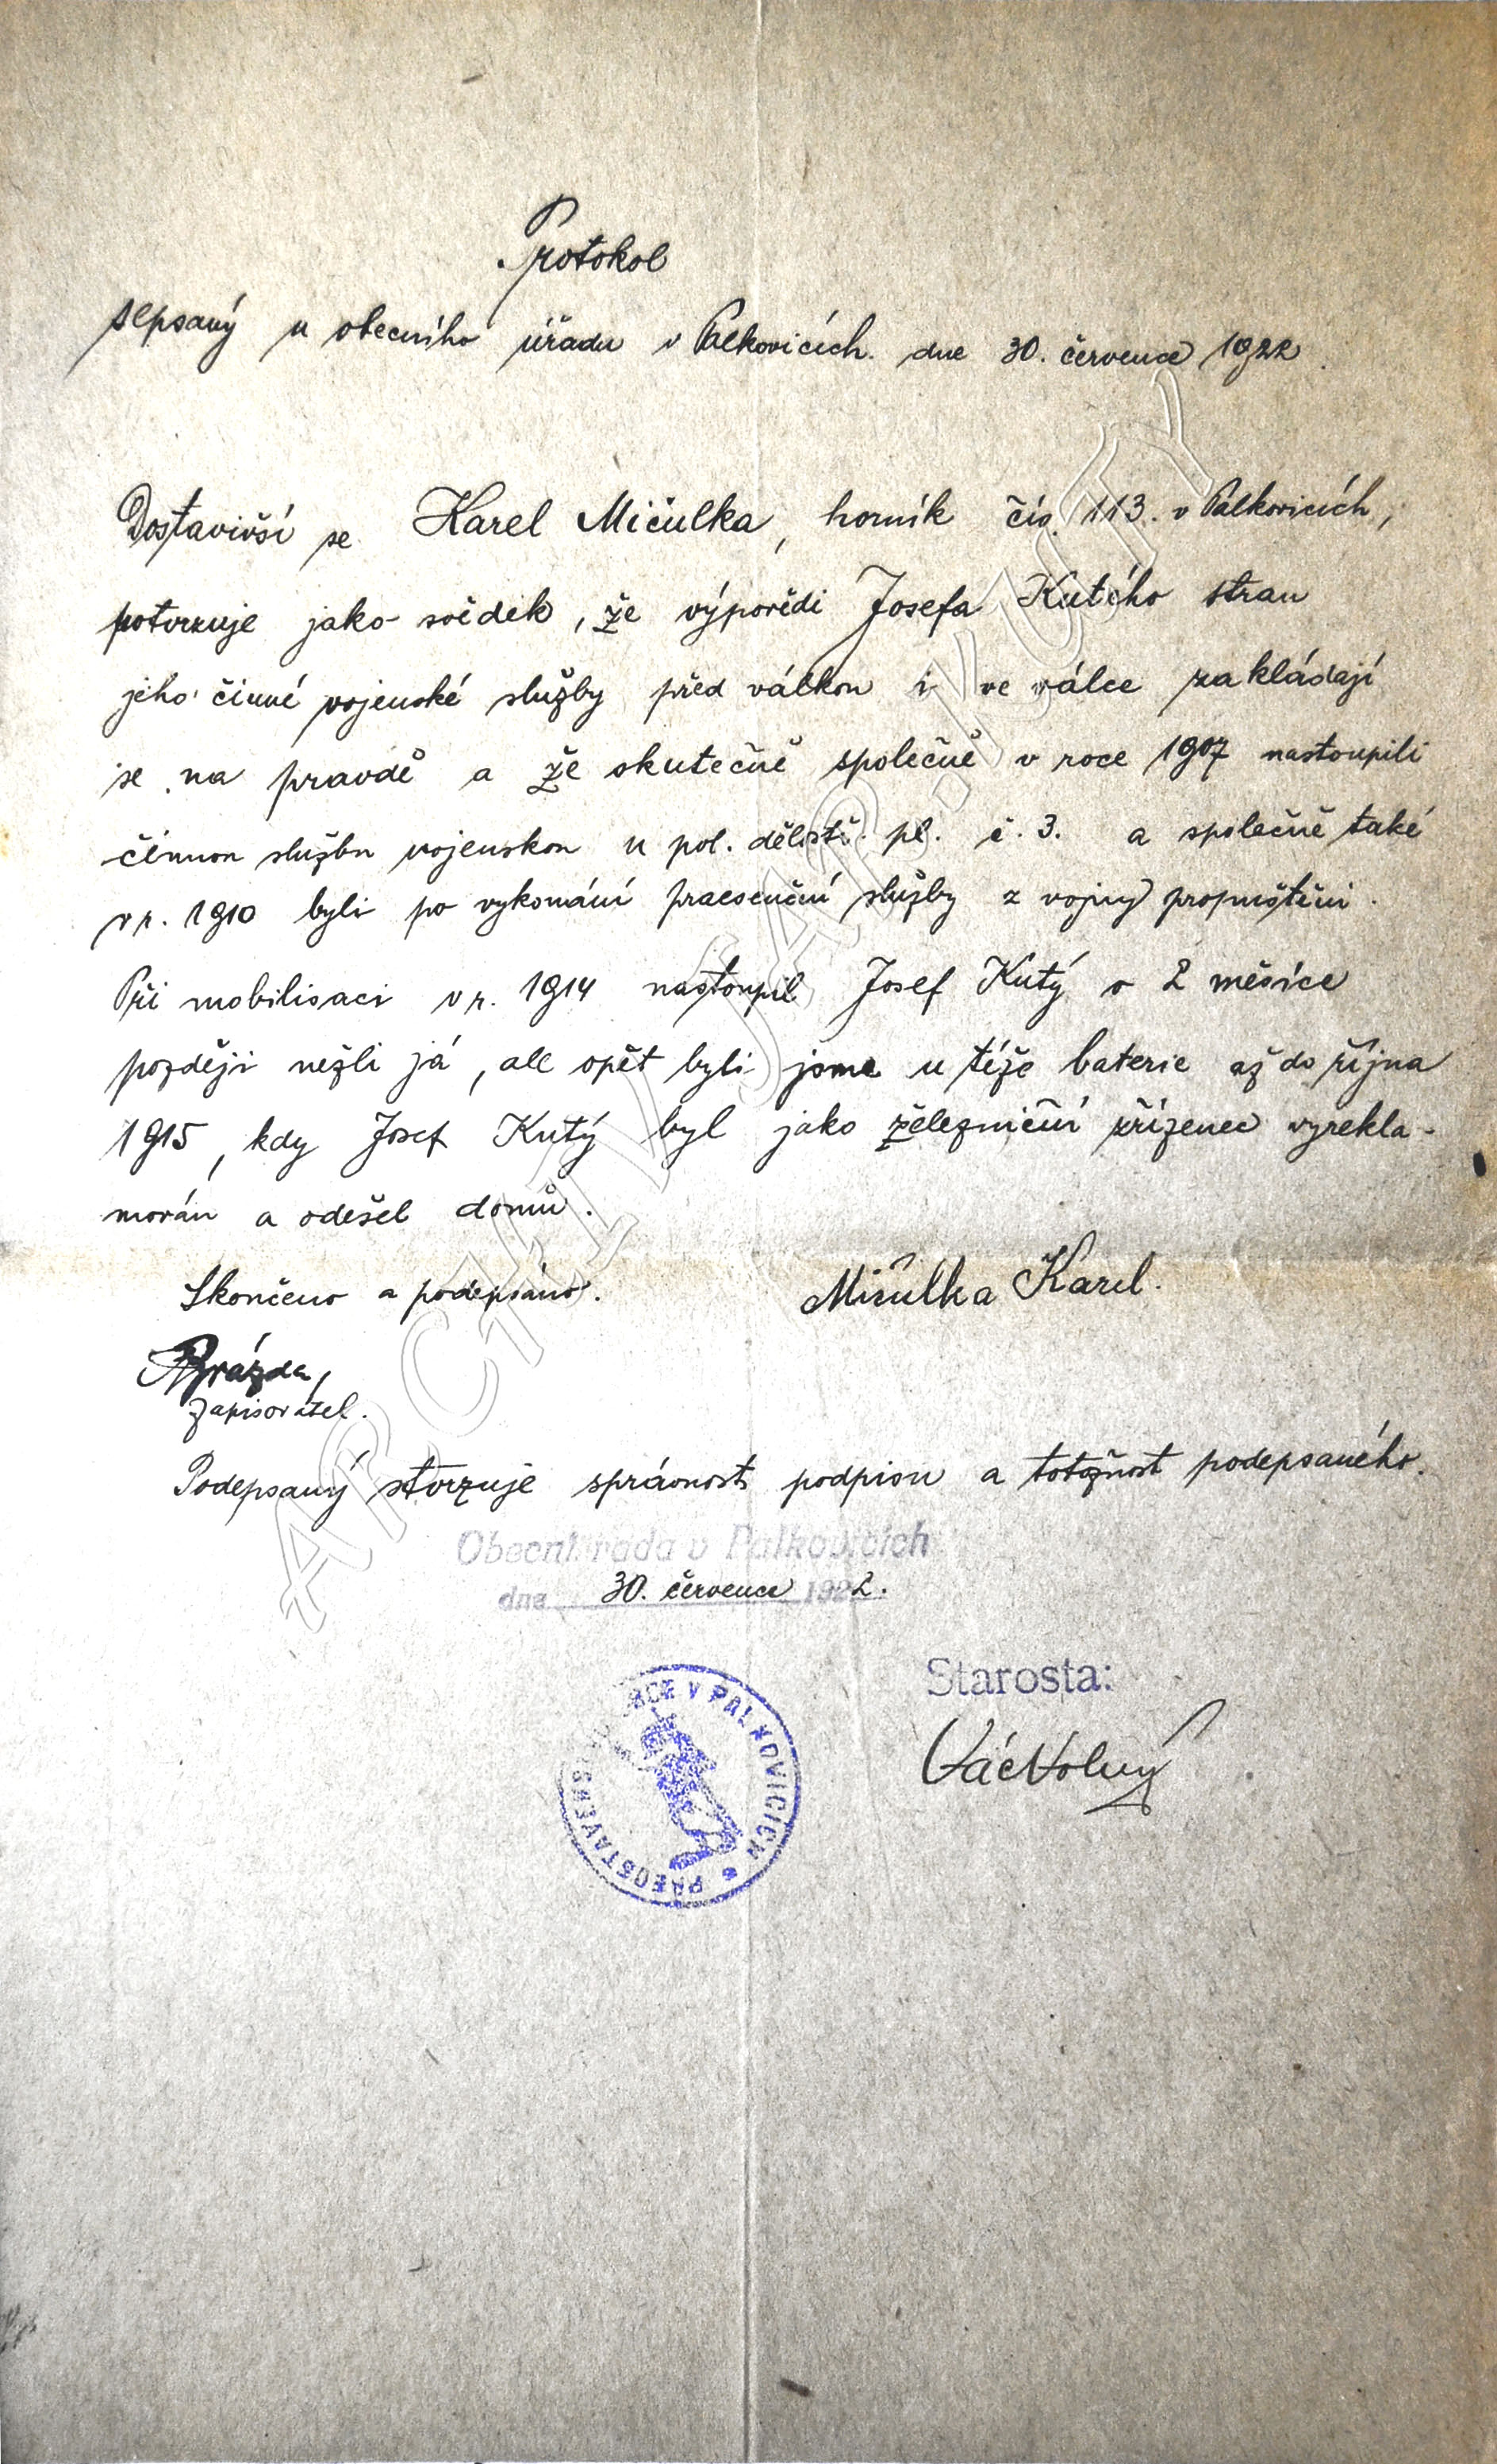 Protokol
sepsaný u obecního úřadu v Palkovicích dne 30. července 1922.
Dostavivší se Karel Mičulka, horník čís. 113. v Palkovicích,
potvrzuje jako svědek, že výpovědi Josefa Kutého stran
jeho činné vojenské služby před válkou i ve válce zakládají
se na pravdě a že skutečně společně v roce 1907 nastoupili
činnou službu vojenskou u pol. dělostř. pl. č. 3. a společně také
v r. 1910 byli po vykonání praesenční služby z vojny propuštěni.
Při mobilisaci v r. 1914 nastoupil Josef Kutý o 2 měsíce
později nežli já, ale opět byli jsme u téže baterie až do října
1915, kdy Josef Kutý byl jako železniční zřízenec vyrekla-
mován a odešel domů.
Skončeno a podepsáno.
Mičulka Karel.
Brázda,
zapisovatel.
Podepsaný stvrzuje správnost podpisu a totožnost podepsaného.
Obecní rada v Palkovicích
dne 30. července 1922.
Starosta:
Vác Volný
PŘEDSTAVENS OBCE V PALKOVICÍCH
ARCHIV JAP. KUTY